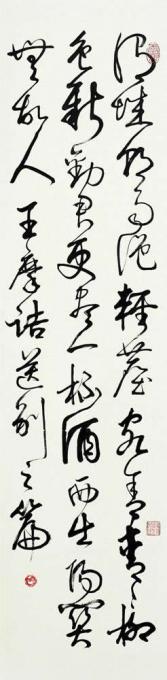 渭城朝雨浥輕塵客舍青青柳
色新勸君更盡一杯酒西出陽關
無故人 王摩詰送別之篇